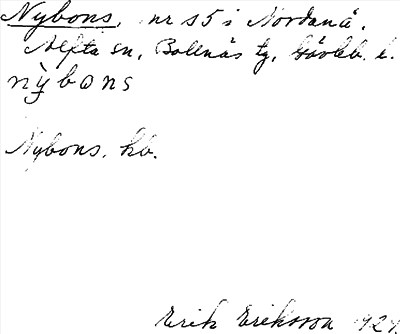 Nybons, nr s5 i Nordanå.
Alfta sn, Bollnäs tg, Gävleb. l.
nỳbɷns
Nybons, hb.
Erik Eriksson 192